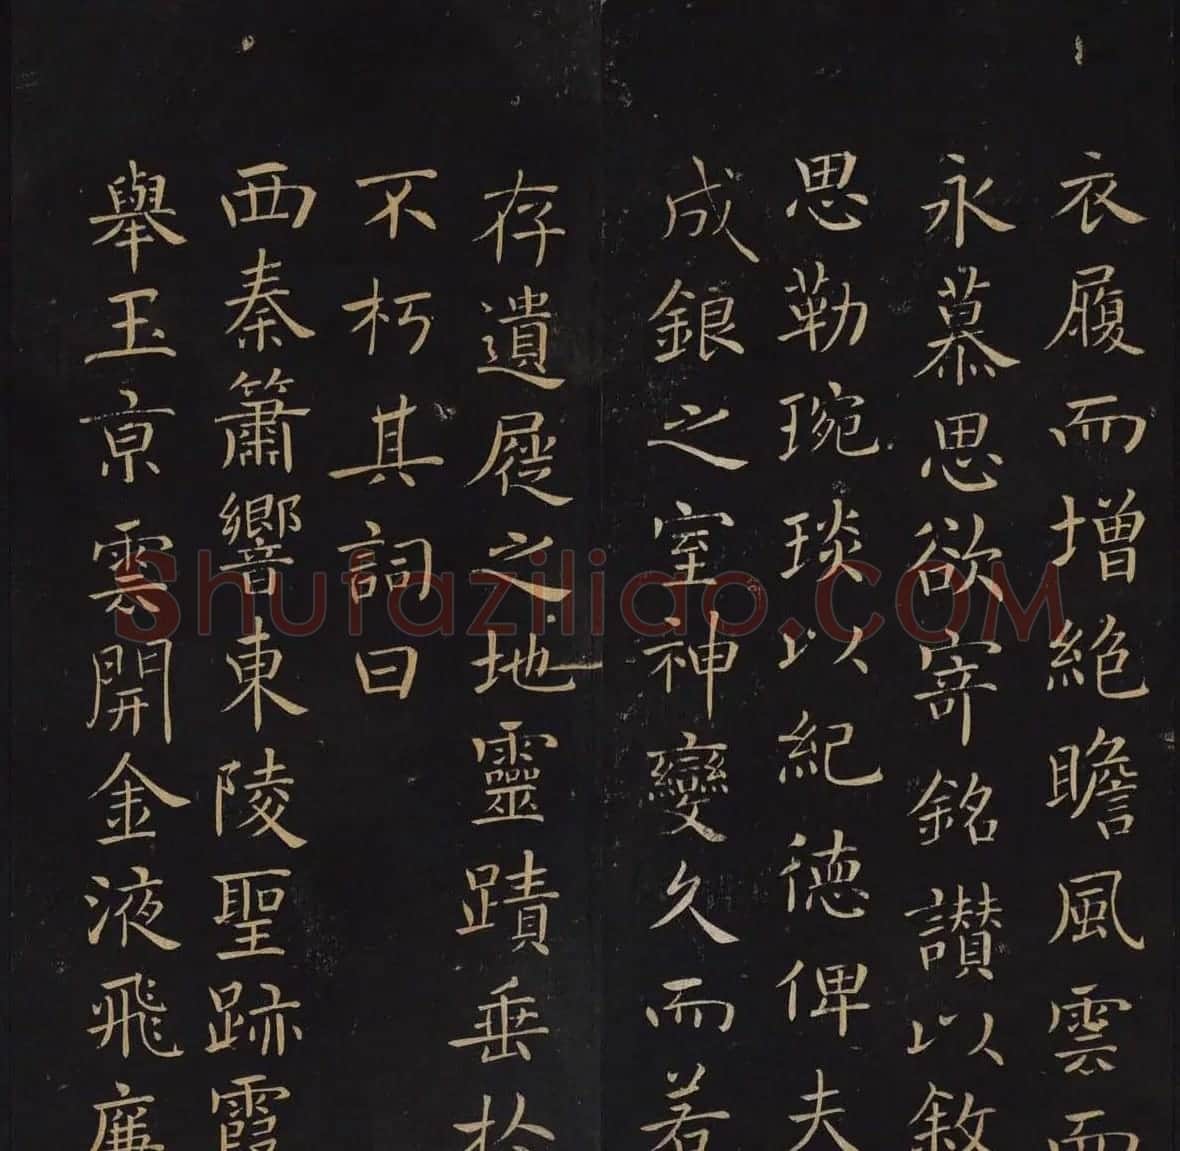 衣履而增絶瞻風雲而
永慕思欲寄銘讃以敘
思勒琬琰以紀德俾夫
成銀之室神變久而若
存遺屣之地靈蹟垂於
不朽其詞曰
西秦簫響東陵聖跡霞
舉玉京雲開金液飛廉
Shufaziliao.COM